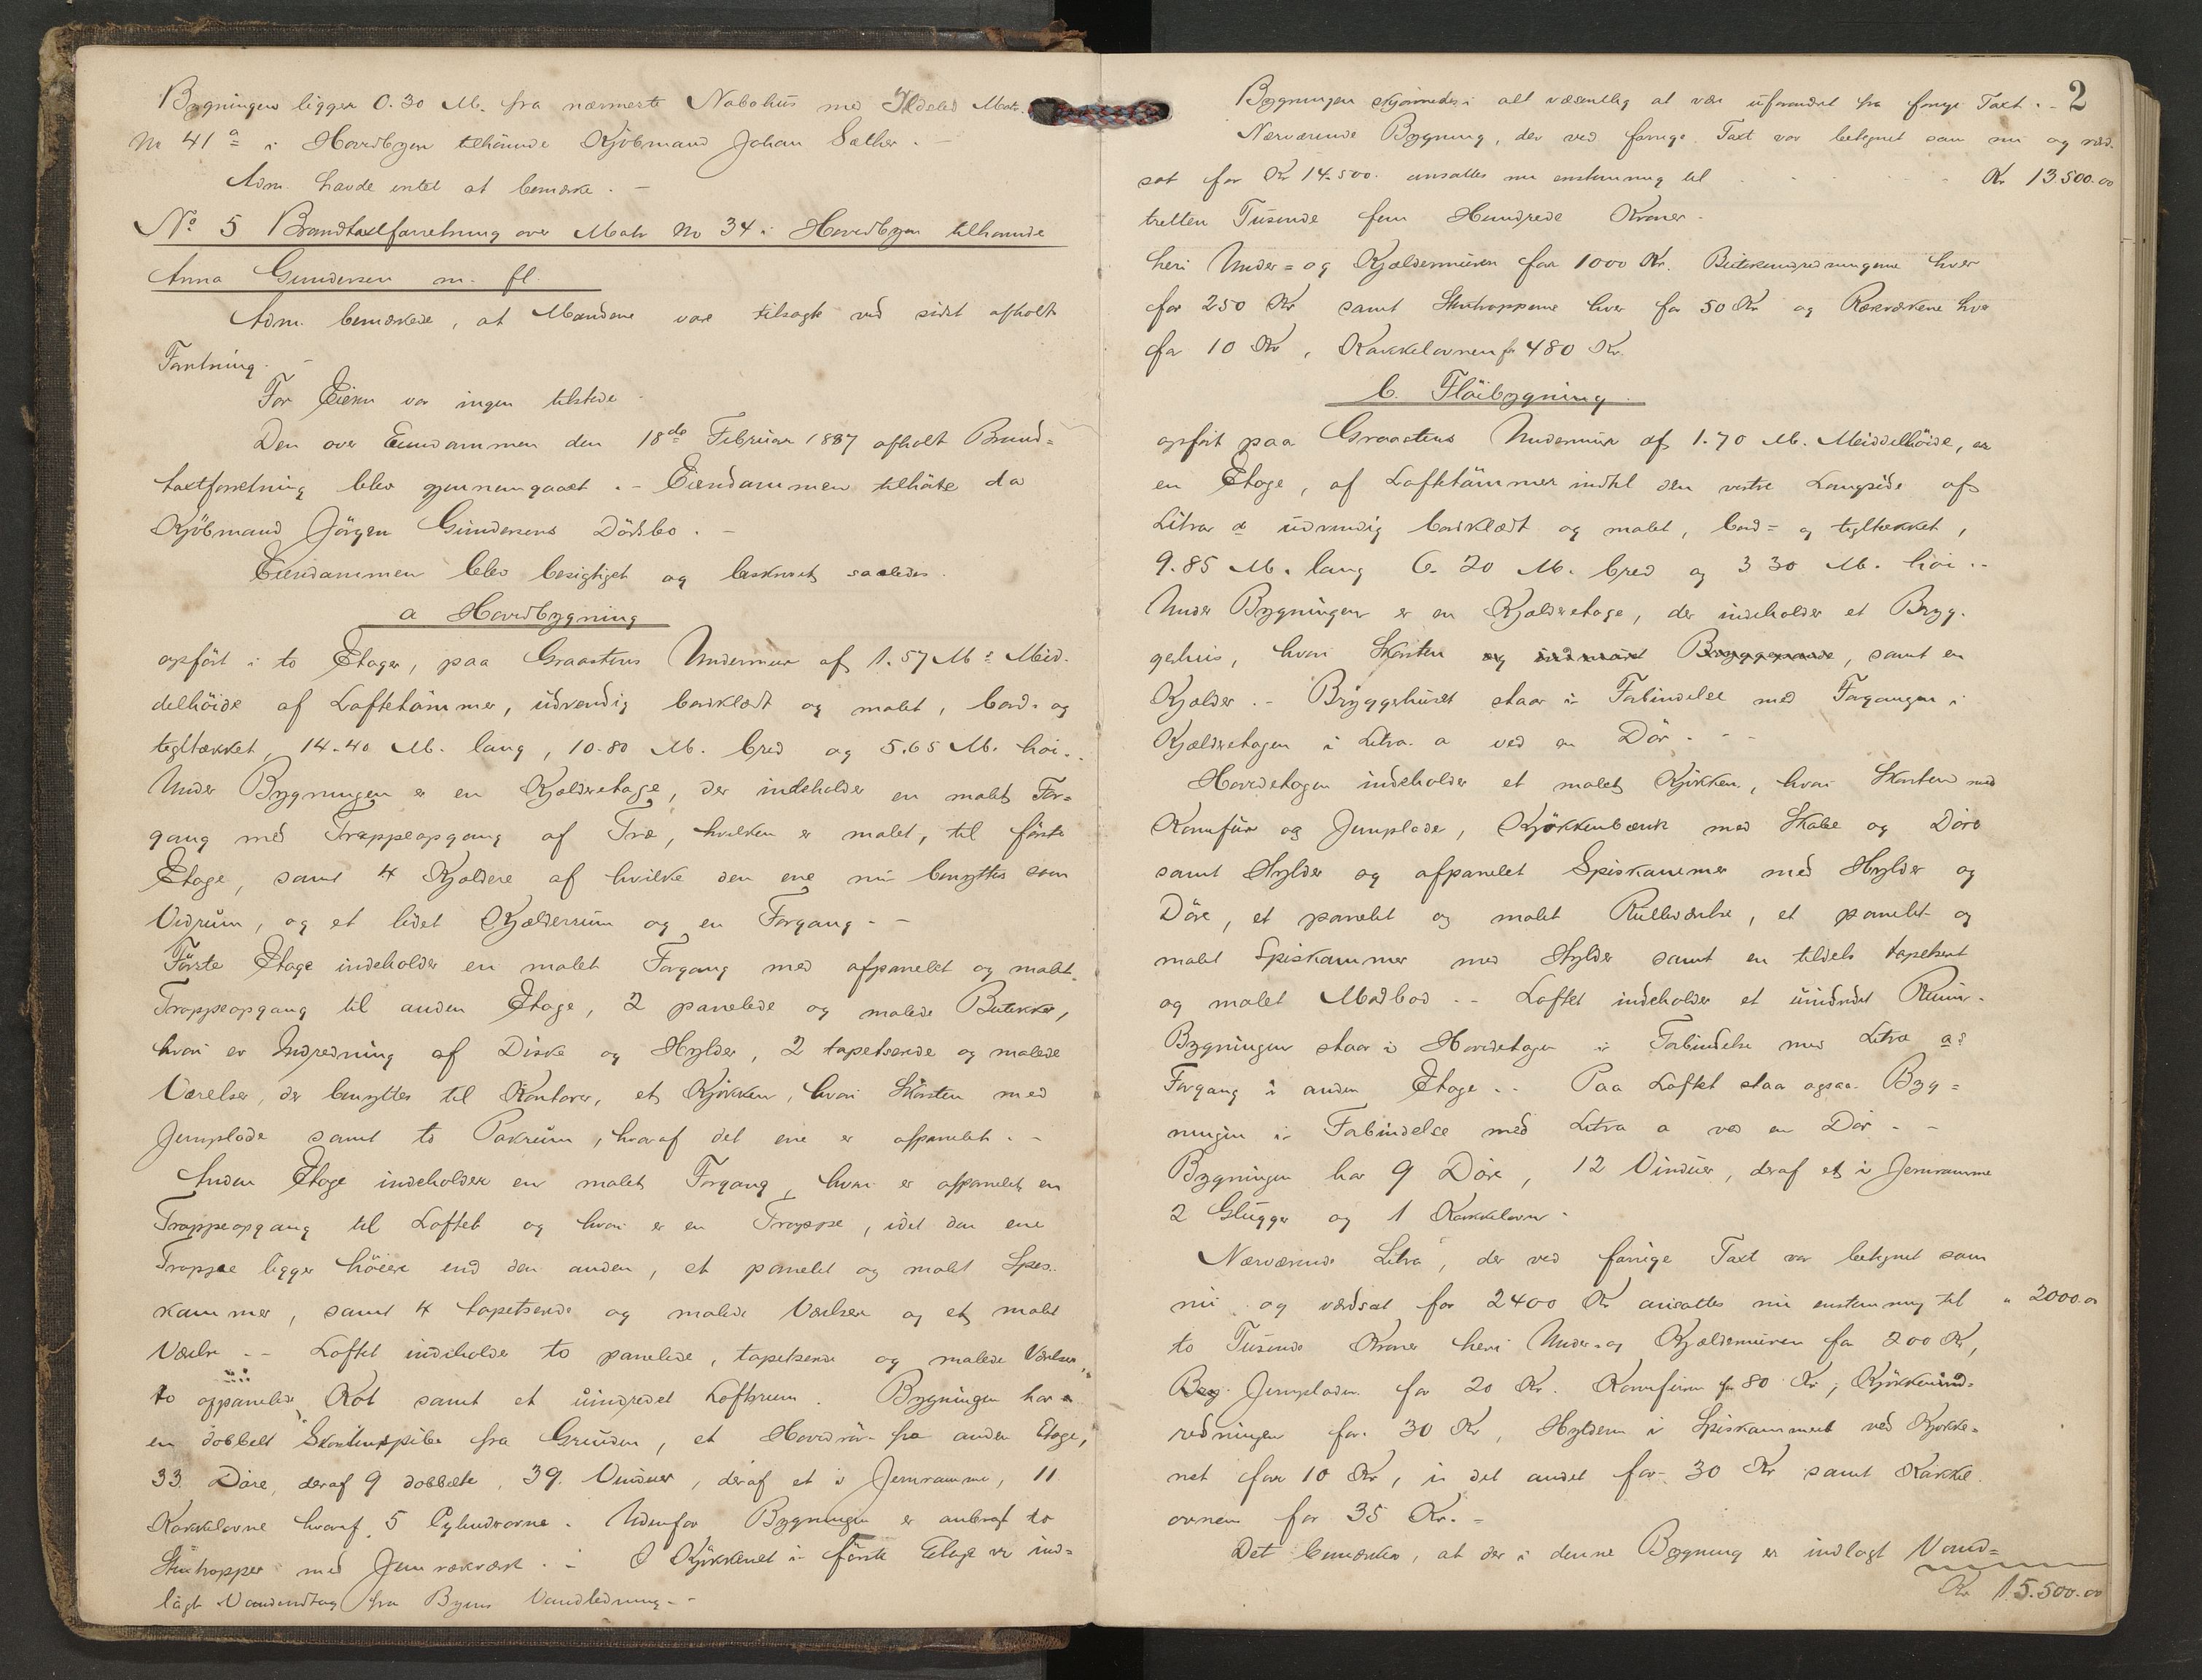 Bygningen ligger 0.30 M. fra nærmeste Nabohus med Ildsted Matr.
No 41a i Hovedbyen tilhørende Kjöbmand Johan Sæther. –
Adm. havde intet at bemærke. –
No 5 Brandtaxtforretning over Matr No 34 i Hovedbyen tilhørende
Anna Gundersen m. fl.
Adm. bemærkede, at Mændene var tilsagte ved sidst afholdte
Forretning. –
For Eieren var ingen tilstede.
Den over Eiendommen den 18de Februar 1887 afholdt Brand=
taxtforretning blev gjennemgaaet. – Eiendommen tilhörte da
Kjöbmand Jörgen Gundersens Dödsbo. –
Eiendommen blev besigtiget og beskrevet saaledes.
a Hovedbygning
opfört i to Etager, paa Graastens Undermur af 1.57 M: Mid-
delhöide af Laftetömmer, udvendig bordklædt og malet, bord- og
tegltækket, 14.40 M. lang, 10.80 M. bred og 5.65 M. höi. -
Under Bygningen er en Kjælderetage, der indeholder en malet For=
gang med Trappeopgang af Træ, hvilken er malet, til förste
Etage, samt 4 Kjældere af hvilke den ene nu benyttes som
Vedrum, og et lidet Kjælderrum og en Forgang. –
Förste Etage indeholder en malet Forgang med afpanelet og malet
Trappeopgang til anden Etage, 2 panelede og malede Butikker,
hvori er Indredning af Diske og Hylder, 2 tapetserede og malede
Værelser, der benyttes til Kontorer, et Kjökken, hvori Skorsten med
Jernplade samt to Pakrum, hvoraf det ene er afpanelet. –
Anden Etage indeholder en malet Forgang, hvori er afpanelet en
Trappeopgang til Loftet og hvori er en Trappe, idet den ene
Trappe ligger höiere end den anden, et panelet og malet Spis-
kammer, samt 4 tapetserede og malede Værelser og et malet
Værelse. – Loftet indeholder to panelede, tapetserede og malede Værelser,
to afpanelede Kot samt et uindredet Loftsrum. Bygningen har
en dobbelt Skorstenspibe fra Grunden, et Hovedrör fra anden Etage,
33 Döre, deraf 9 dobbelte, 39 Vinduer, deraf et i Jernramme, 11
Kakkelovne hvoraf 5 Cylinderovne. Udenfor Bygningen er anbragt to
Stentrapper med Jernrækværk. – I Kjökkenet i förste Etage er ind=
lagt Vandudtag fra Byens Vandledning. –
2
Bygningen skjönnedes i alt væsentlig at være uforandret fra forrige Taxt. –
Nærværende Bygning, der ved forrige Taxt var betegnet som nu og værd-
sat for Kr 14.500. ansattes nu enstemmig til Kr 13.500.00
tretten Tusende fem Hundrede Kroner.
heri Under= og Kjældermuren for 1000 Kr. Butikindredningerne hver
for 250 Kr samt Stentrapperne hver for 50 Kr og Rækværkene hver
for 10 Kr, Kakkelovnen for 480 Kr.
b. Flöibygning
opfört paa Graastens Undermur af 1.70 M. Middelhöide, er
en Etage, af Laftetömmer indtil den vestre Langside af
Litra a udvendig bordklædt og malet, bord= og tegltækket,
9.85 M. lang 6.20 M. bred og 3 30 M. höi. –
Under Bygningen er en Kjælderetage, der indeholder et Bryg-
gerhus, hvori Skorsten og indmuret Bryggepande, samt en
Kjælder. – Bryggerhuset staar i Forbindelse med Forgangen i
Kjælderetagen i Litra. a ved en Dör. –
Hovedetagen indeholder et malet Kjökken, hvori Skorsten med
Komfur og Jernplade, Kjökkenbænk med Skabe og Döre
samt Hylder og afpanelet Spiskammer med Hylder og
Döre, et panelet og malet Rulleværelse, et panelet og
malet Spiskammer med Hylder samt en tildels tapetseret
og malet Madbod. – Loftet indeholder et uindredet Rum.
Bygningen staar i Hovedetagen i Forbindelse med Litra a's
Forgang i anden Etage. – Paa Loftet staar ogsaa Byg=
ningen i Forbindelse med Litra a ved en Dör. –
Bygningen har 9 Döre, 12 Vinduer, deraf et i Jernramme
2 Glugger og 1 Kakkelovn.
Nærværende Litra, der ved forrige Taxt var betegnet som
nu og værdsat for 2400 Kr ansattes nu enstemmig til " 2000.00
to Tusende Kroner heri Under- og Kjældermuren for 200 Kr,
Jernpladen for 20 Kr. Komfuren for 80 Kr, Kjökkenind-
redningen for 30 Kr, Hylderne i Spiskammeret ved Kjökke-
net for 10 Kr, i det andet for 30 Kr samt Kakkel-
ovnen for 35 Kr. –
Det bemærkes, at der i denne Bygning er indlagt Vand=
Kr. 15.500.00